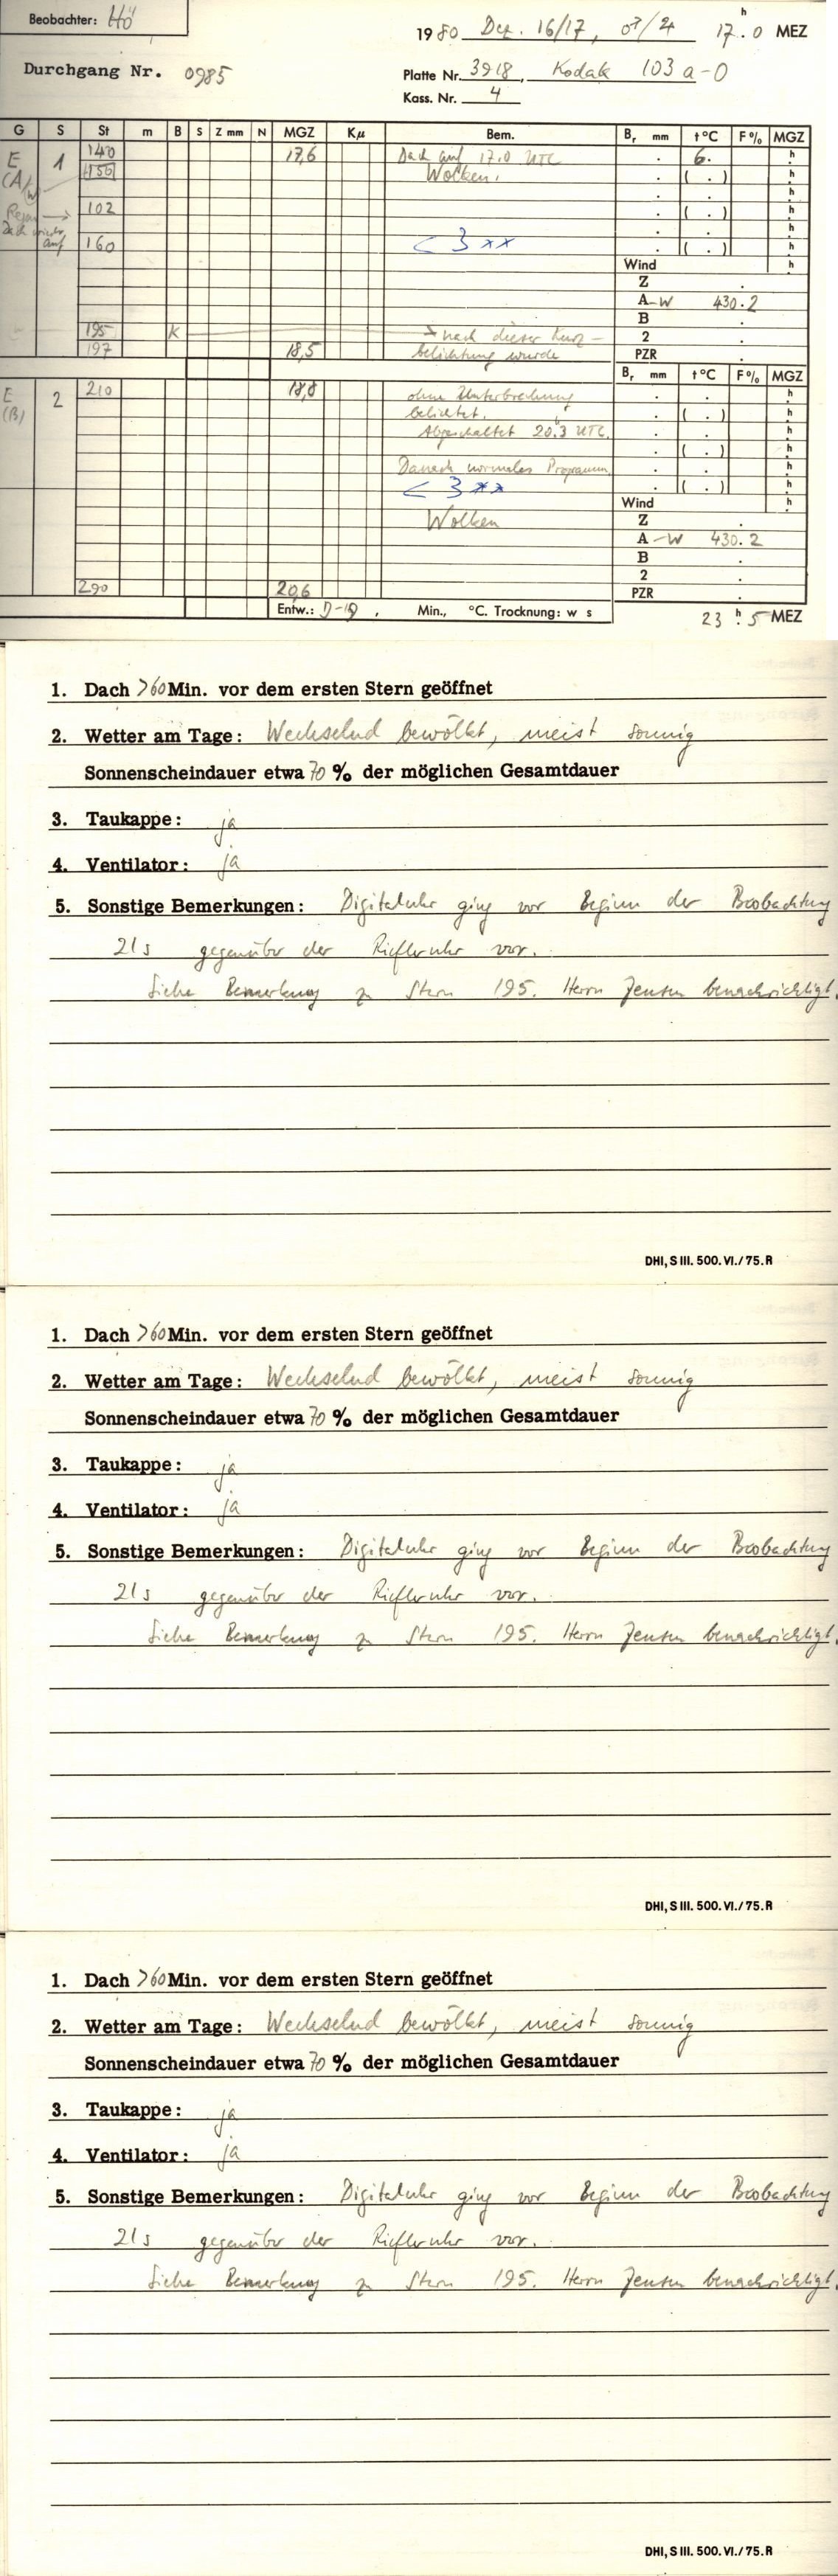 Beobachter: Hö
1980 Dez. 16/17, ♂/♃ 17h.0 MEZ
Durchgang Nr. 0985
Platte Nr. 3918, Kodak 103 a-O
Kass. Nr. 4
G S St m B S Z mm N MGZ Kμ Bem. Br mm t°C F% MGZ
E 1 140 17,6 Dach auf 17.0 UTC . 6. h
(A/W) 156 Wolken. . ( . ) h
. . h
Regen → 102 . ( . ) h
Dach wieder . . h
auf 160 < 3 ** . ( . ) h
Wind h
Z .
A-W 430.2
B .
195 K nach dieser Kurz- 2 .
197 18,5 belichtung wurde PZR .
Br mm t°C F% MGZ
E 2 210 18,8 ohne Unterbrechung . . h
(B) belichtet. . ( . ) h
Abgeschaltet 20h.3 UTC. . . h
. ( . ) h
Danach normales Programm . . h
< 3 ** . ( . ) h
Wind h
Wolken Z .
A-W 430.2
B .
2 .
290 20,6 PZR .
Entw.: D-19, Min., °C. Trocknung: w s 23h.5 MEZ
1. Dach >60 Min. vor dem ersten Stern geöffnet
2. Wetter am Tage: Wechselnd bewölkt, meist sonnig
Sonnenscheindauer etwa 70 % der möglichen Gesamtdauer
3. Taukappe: ja
4. Ventilator: ja
5. Sonstige Bemerkungen: Digitaluhr ging vor Beginn der Beobachtung
21s gegenüber der Riefleruhr vor.
Siehe Bemerkung zu Stern 195. Herrn Jensen benachrichtigt.
DHI, S III. 500. VI./75. R
1. Dach >60 Min. vor dem ersten Stern geöffnet
2. Wetter am Tage: Wechselnd bewölkt, meist sonnig
Sonnenscheindauer etwa 70 % der möglichen Gesamtdauer
3. Taukappe: ja
4. Ventilator: ja
5. Sonstige Bemerkungen: Digitaluhr ging vor Beginn der Beobachtung
21s gegenüber der Riefleruhr vor.
Siehe Bemerkung zu Stern 195. Herrn Jensen benachrichtigt.
DHI, S III. 500. VI./75. R
1. Dach >60 Min. vor dem ersten Stern geöffnet
2. Wetter am Tage: Wechselnd bewölkt, meist sonnig
Sonnenscheindauer etwa 70 % der möglichen Gesamtdauer
3. Taukappe: ja
4. Ventilator: ja
5. Sonstige Bemerkungen: Digitaluhr ging vor Beginn der Beobachtung
21s gegenüber der Riefleruhr vor.
Siehe Bemerkung zu Stern 195. Herrn Jensen benachrichtigt.
DHI, S III. 500. VI./75. R